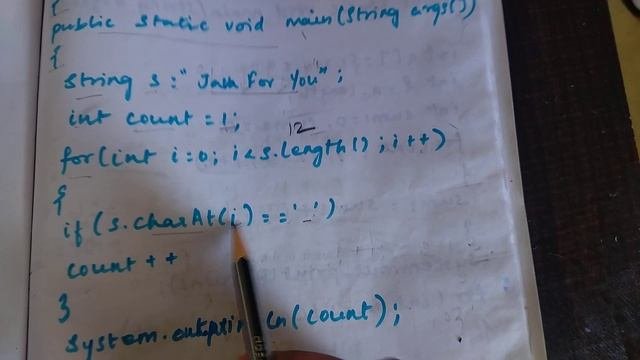 {
public static void main(String args[])
{
String s="Java For You";
int count = 1;
12
for(int i=0; i<s.length(); i++)
{
if (s.charAt(i)=='_')
count ++
}
System.out.println(count);